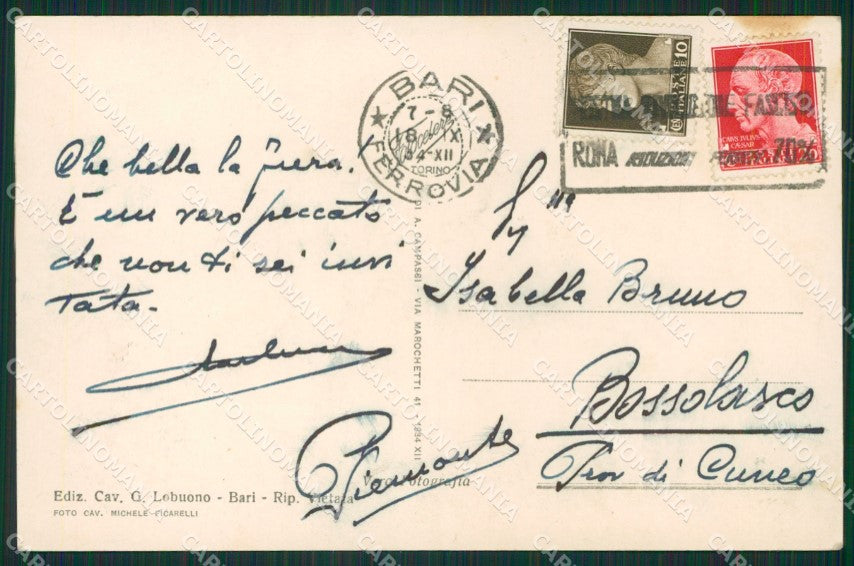 Che bella la fiera!
È un vero peccato
che non ti sei invi
tata.
BARI
7-8
18 X
34-XII
TORINO
FERROVIA
10
CAIVS IVLIVS
CAESAR
ROMA RIDUZIONI FERROV. 70%
Sig.na
Isabella Bruno
Bossolasco
Prov di Cuneo
Piemonte
DI A. CAMPASSI - VIA MAROCHETTI 41 - 1934 XII
Vera Fotografia
Ediz. Cav. G. Lobuono - Bari - Rip. Vietata
FOTO CAV. MICHELE FICARELLI
CARTOLINOMANIA